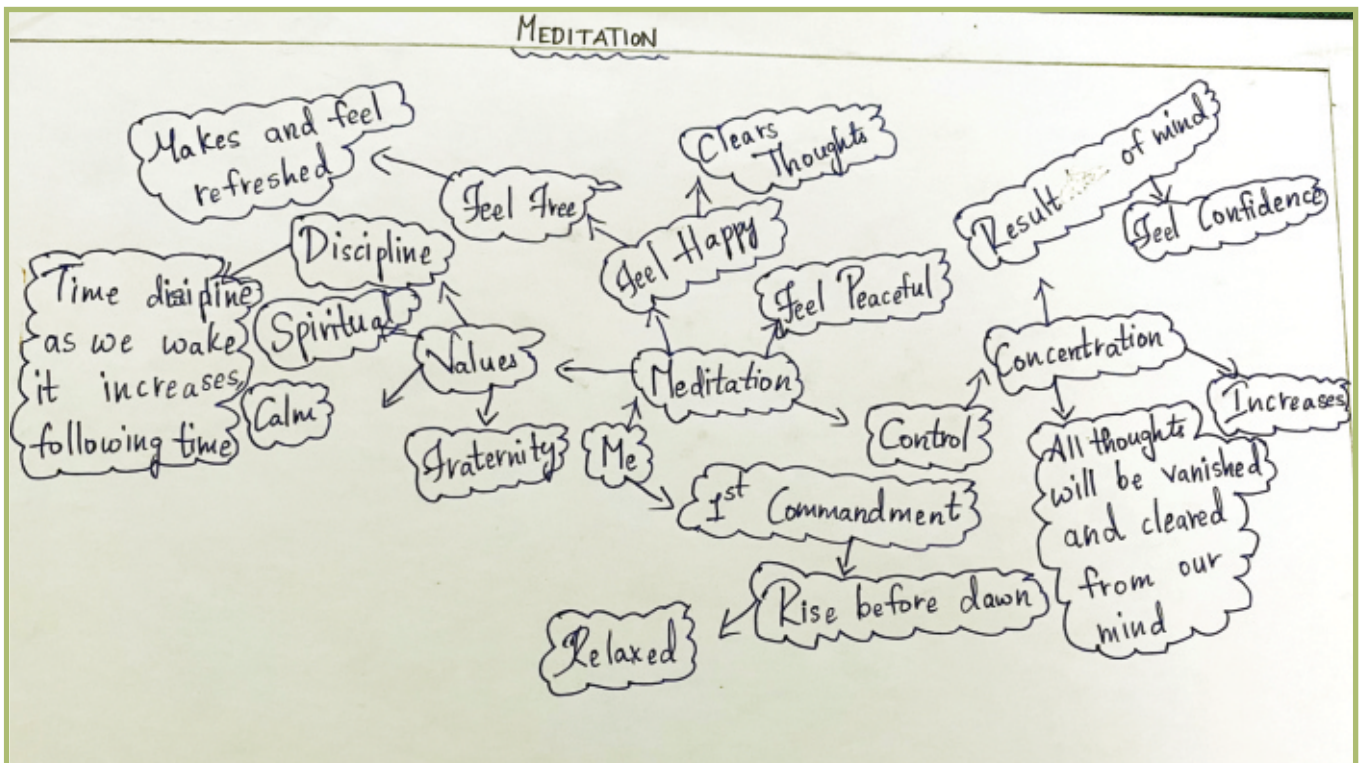 MEDITATION
Makes and feel
refreshed
Feel Free
Clears
Thoughts
Feel Happy
Result of mind
Feel Confidence
Discipline
Time disipline
as we wake
it increases,
following time
Spiritual
Calm
Values
Fraternity
Meditation
Feel Peaceful
Me
Control
Concentration
Increases
All thoughts
will be vanished
and cleared
from our
mind
1st Commandment
Rise before dawn
Relaxed